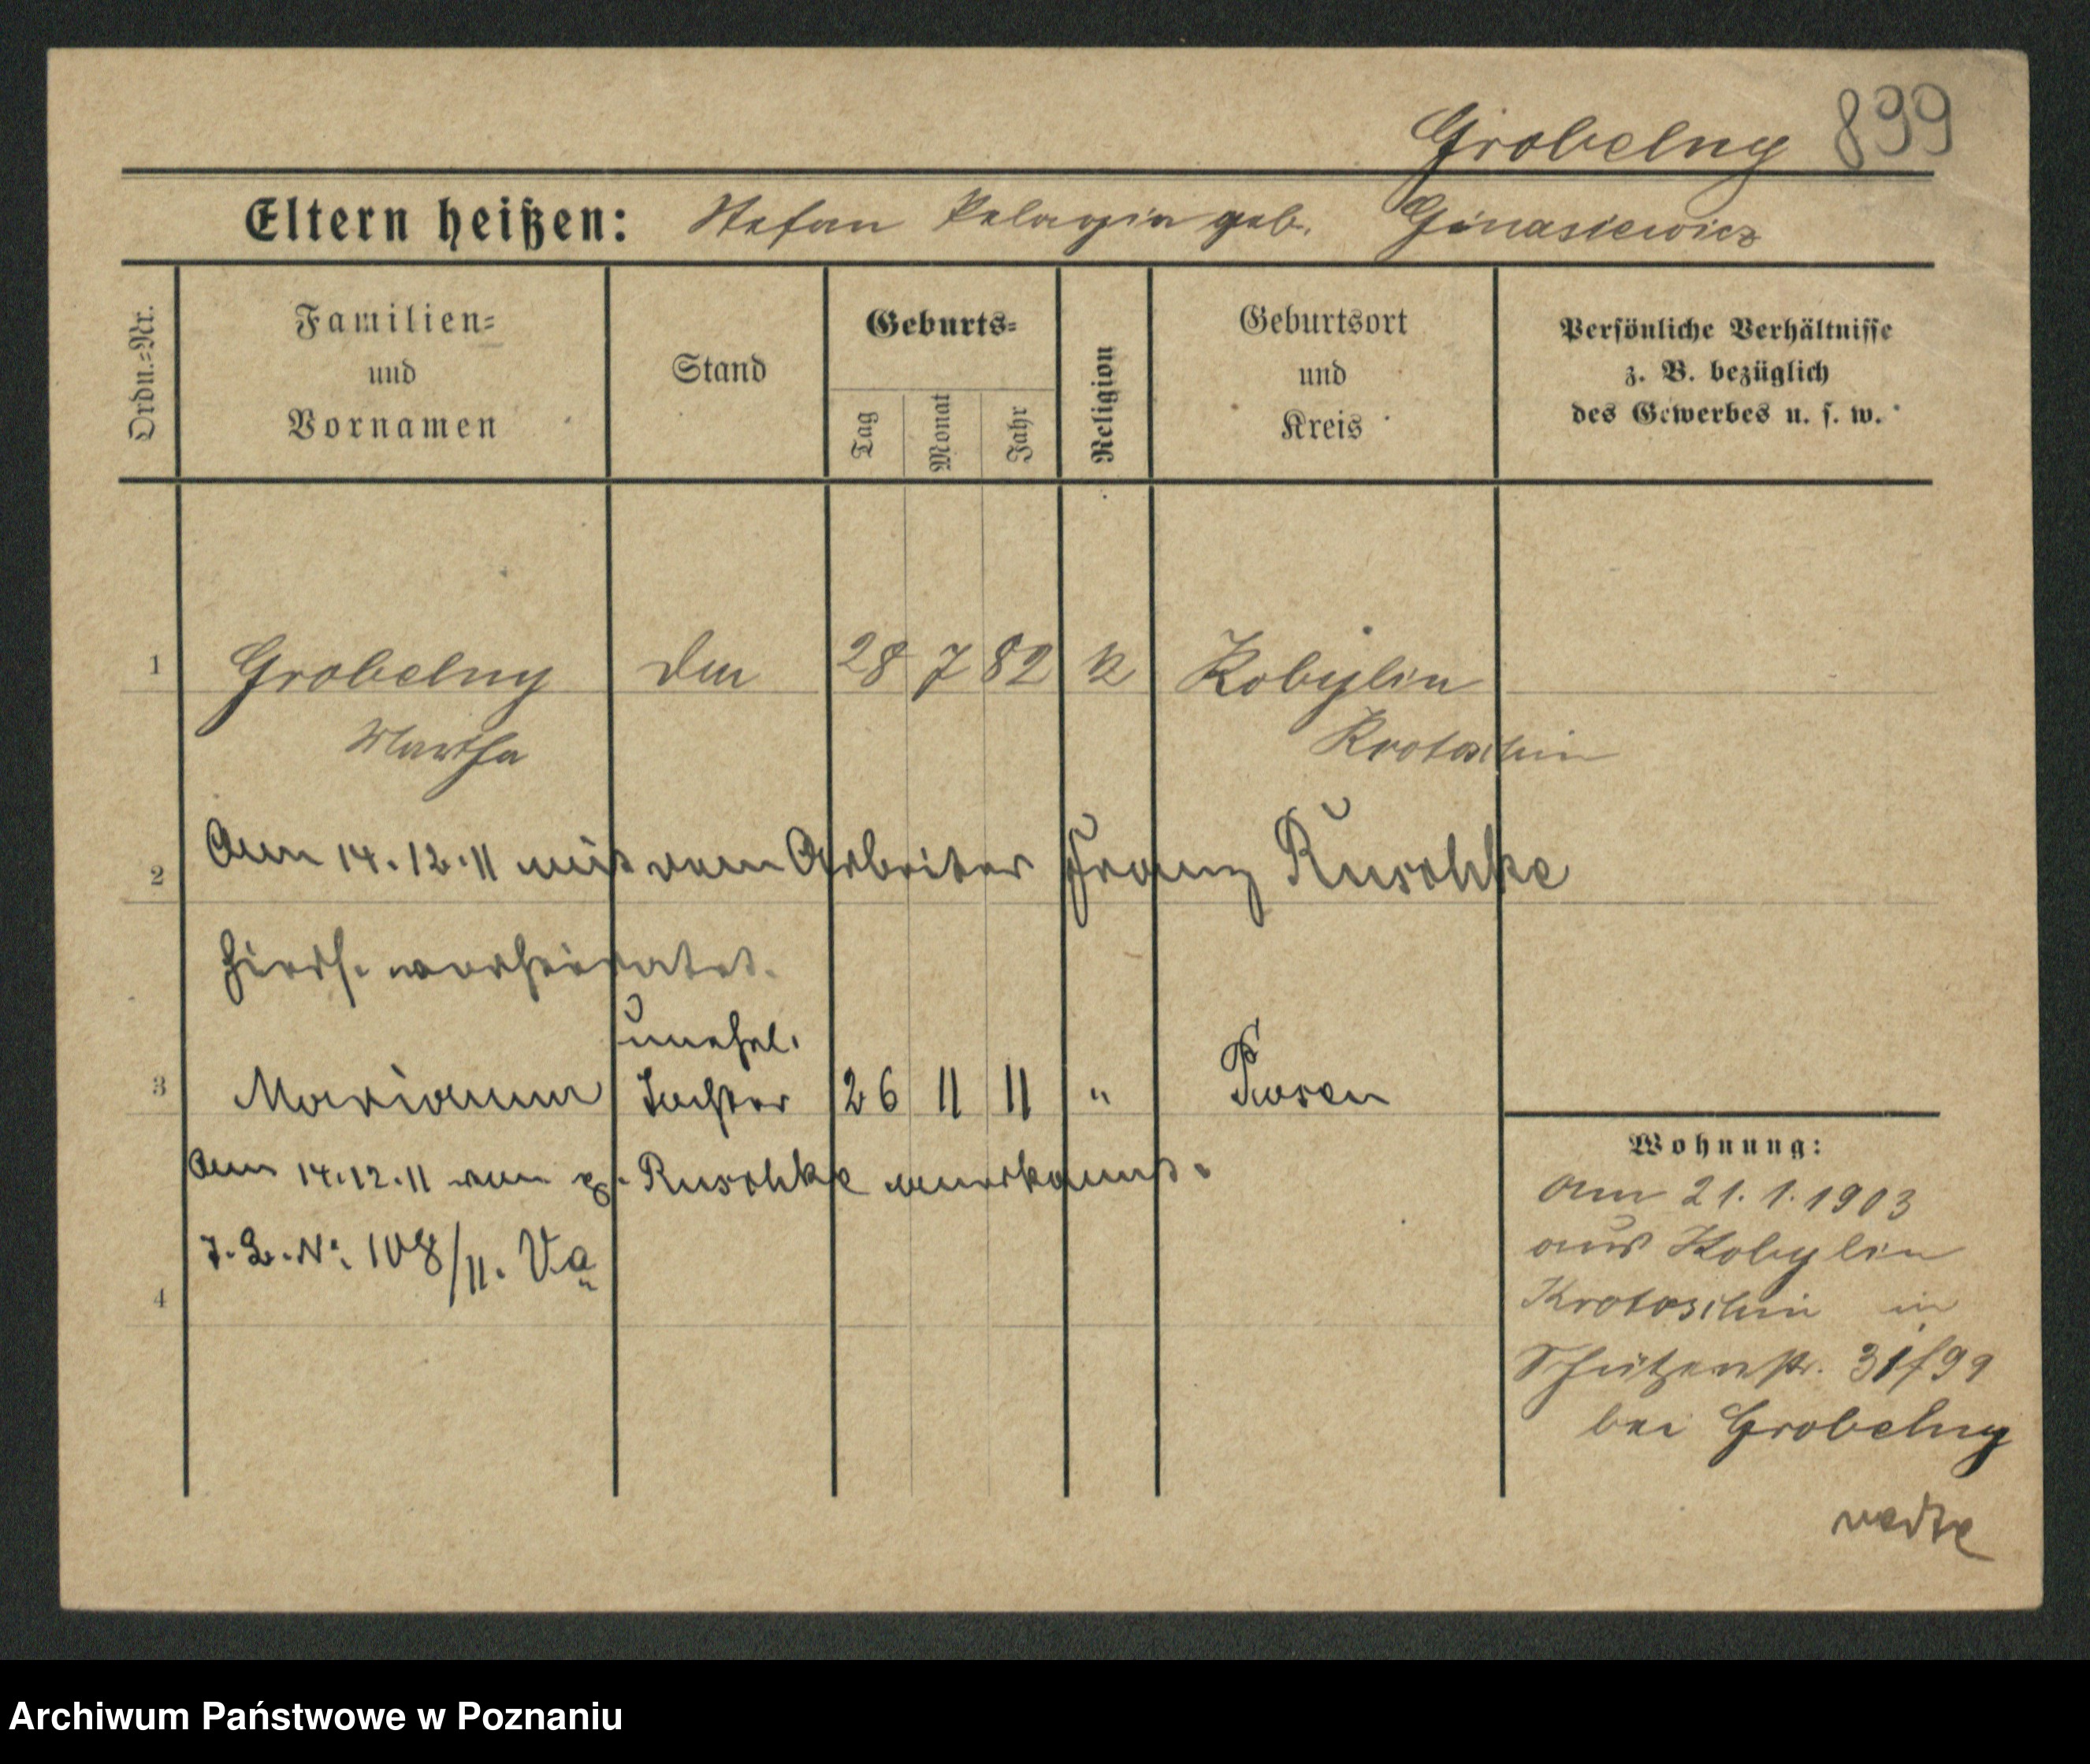 Grobelny 899
Eltern heißen: Stefan Pelagia geb. Ginasiewicz
Ordn.=Nr.
Familien=
und
Vornamen
Stand
Geburts=
Tag
Monat
Jahr
Religion
Geburtsort
und
Kreis
Persönliche Verhältnisse
z. B. bezüglich
des Gewerbes u. s. w.
1 Grobelny 28 7 82 k Kobylin
Martha Krotoschin
2 Am 14.12.11 mit dem Arbeiter Franz Ruschke
hiers. verheiratet.
unehel.
3 Marianna Tochter 26 11 11 " Posen
Am 14.12.11 von p. Ruschke anerkannt.
J. L. No: 108/11. Va
4
Wohnung:
Am 21.1.1903
aus Kobylin
Krotoschin in
Schützenstr. 31/99
bei Grobelny
Archiwum Państwowe w Poznaniu